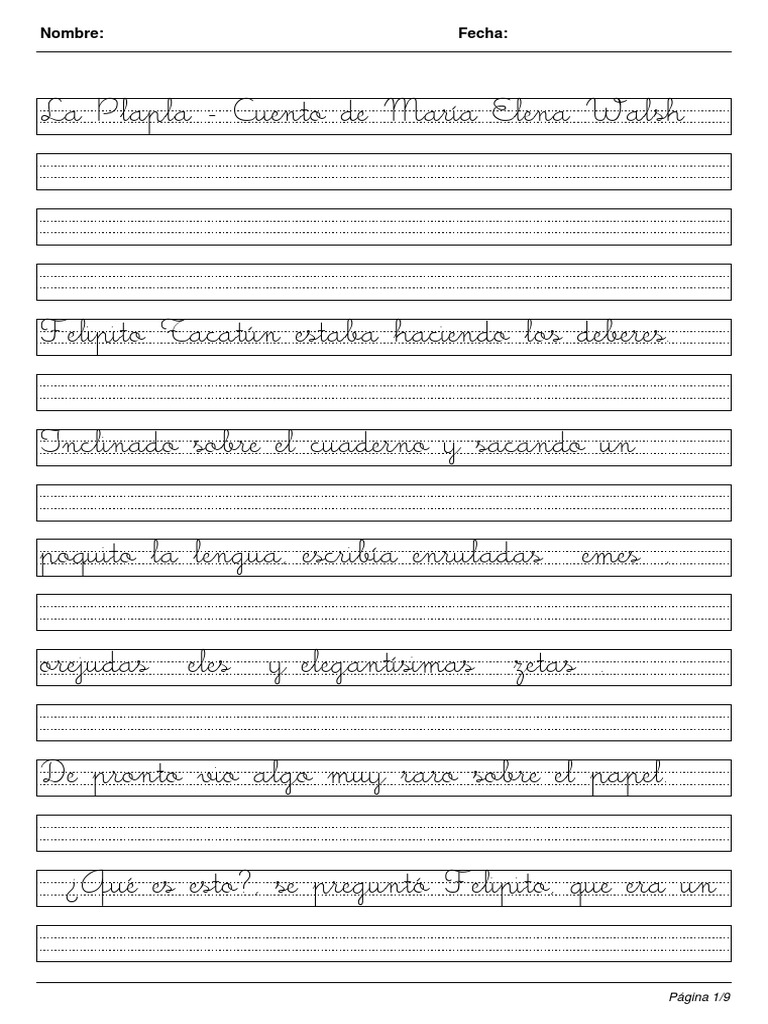 Nombre: Fecha:
La Plapla - Cuento de María Elena Walsh
Felipito Tacatún estaba haciendo los deberes.
Inclinado sobre el cuaderno y sacando un
poquito la lengua, escribía enruladas emes ,
orejudas eles y elegantísimas zetas .
De pronto vio algo muy raro sobre el papel.
¿Qué es esto?, se preguntó Felipito, que era un
Página 1/9